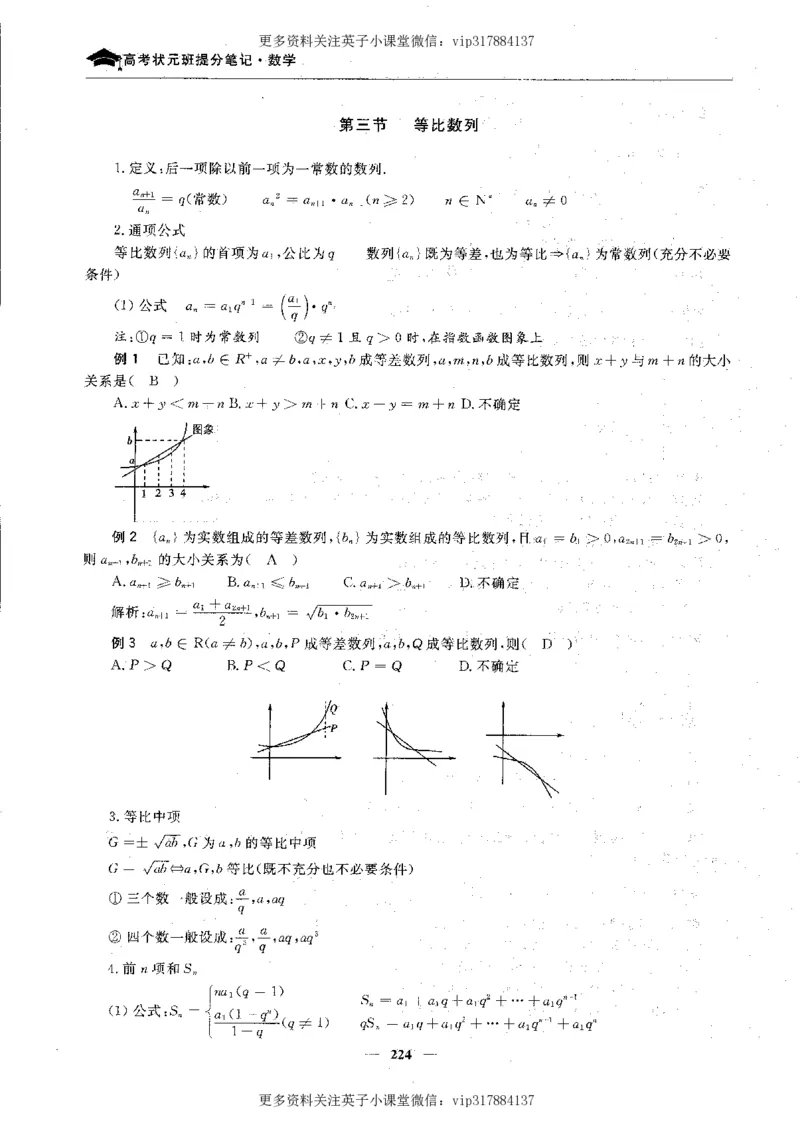 更多资料关注英子小课堂微信：vip317884137
高考状元班提分笔记·数学
第三节 等比数列
1.定义:后一项除以前一项为一常数的数列.
a_{n+1}/a_n = q(常数) a_n² = a_{n+1}·a_n (n≥2) n∈N* a_n≠0
2.通项公式
等比数列{a_n}的首项为a₁,公比为q 数列{a_n}既为等差,也为等比⇒{a_n}为常数列(充分不必要
条件)
(1)公式 a_n = a₁q^{n-1} = (a₁/q)·q^n
注:①q=1时为常数列 ②q≠1且q>0时,在指数函数图象上
例1 已知:a,b∈R⁺,a≠b,a,x,y,b成等差数列,a,m,n,b成等比数列,则x+y与m+n的大小
关系是( B )
A.x+y<m+n B.x+y>m+n C.x-y=m+n D.不确定
图象
b
a
1 2 3 4
例2 {a_n}为实数组成的等差数列,{b_n}为实数组成的等比数列,且a₁=b₁>0,a_{2n+1}=b_{2n+1}>0,
则a_{n+1},b_{n+1}的大小关系为( A )
A.a_{n+1}≥b_{n+1} B.a_{n+1}≤b_{n+1} C.a_{n+1}>b_{n+1} D.不确定
解析:a_{n+1} = (a₁+a_{2n+1})/2, b_{n+1} = √(b₁·b_{2n+1})
例3 a,b∈R(a≠b),a,b,P成等差数列,a,b,Q成等比数列.则( D )
A.P>Q B.P<Q C.P=Q D.不确定
Q
P
3.等比中项
G=±√ab,G为a,b的等比中项
G=√ab⇔a,G,b等比(既不充分也不必要条件)
①三个数一般设成:a/q,a,aq
②四个数一般设成:a/q³,a/q,aq,aq³
4.前n项和S_n
(1)公式:S_n = { na₁(q=1) S_n = a₁+a₁q+a₁q²+…+a₁q^{n-1}
a₁(1-q^n)/(1-q) (q≠1) qS_n = a₁q+a₁q²+…+a₁q^{n-1}+a₁q^n
— 224 —
更多资料关注英子小课堂微信：vip317884137